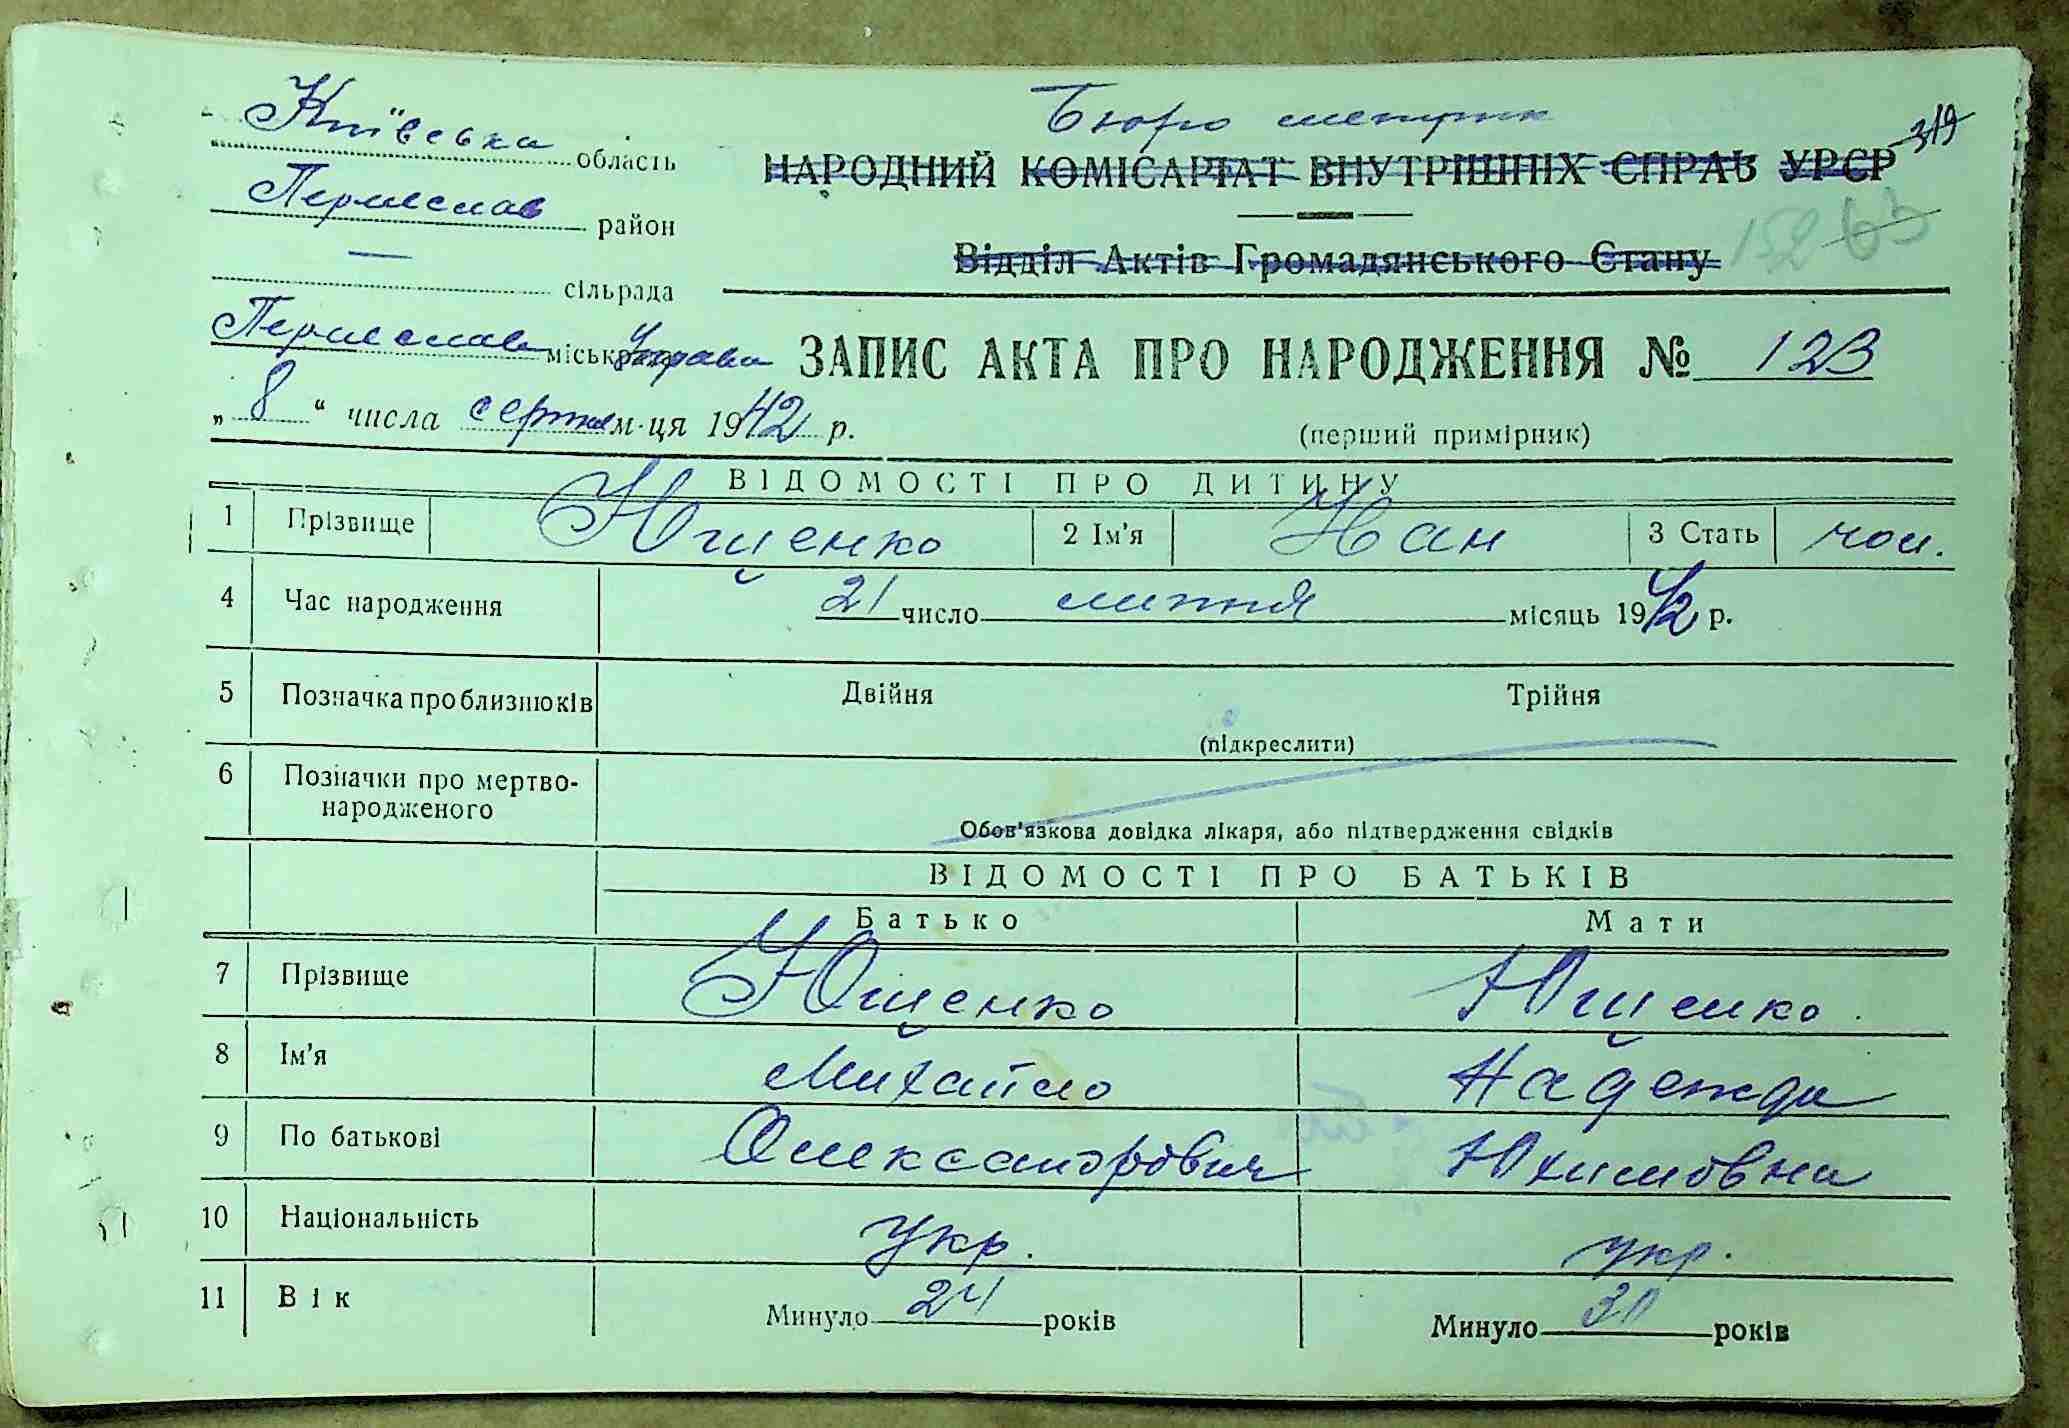 Київська область
Бюро метрик
319
НАРОДНИЙ КОМІСАРІАТ ВНУТРІШНІХ СПРАВ УРСР
Переяслав район
152 63
Відділ Актів Громадянського Стану
— сільрада
Переяслав міськ управа
ЗАПИС АКТА ПРО НАРОДЖЕННЯ № 123
„8“ числа серпня м-ця 1942 р.
(перший примірник)
ВІДОМОСТІ ПРО ДИТИНУ
1 Прізвище Ющенко 2 Ім'я Іван 3 Стать чол.
4 Час народження 21 число липня місяць 1942 р.
5 Позначка про близнюків Двійня Трійня
(підкреслити)
6 Позначки про мертво-
народженого
Обов'язкова довідка лікаря, або підтвердження свідків
ВІДОМОСТІ ПРО БАТЬКІВ
Батько Мати
7 Прізвище Ющенко Ющенко.
8 Ім'я Михайло Надежда
9 По батькові Олександрович Юхимовна
10 Національність укр. укр.
11 Вік Минуло 24 років Минуло 30 років